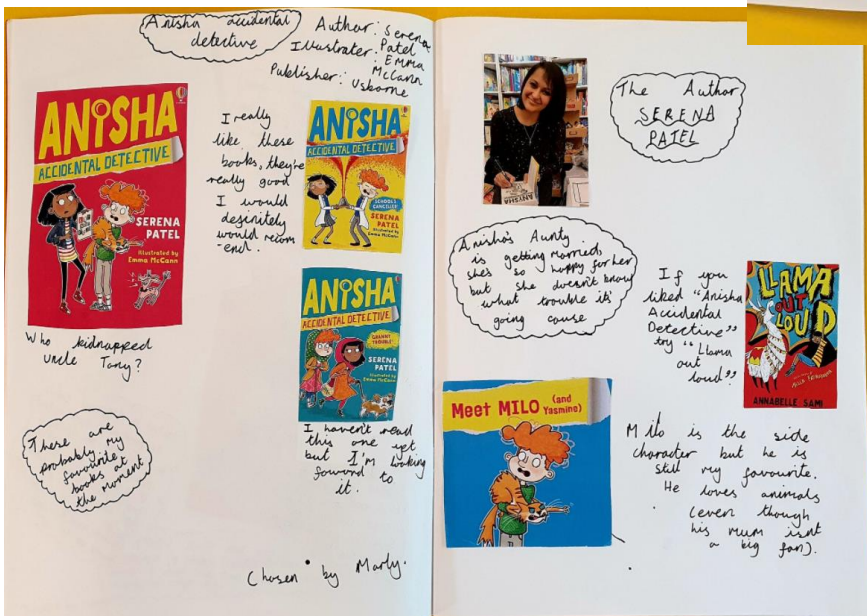 Anisha accidental
detective
Author: Serena
Patel
Illustrater: Emma
McCann
Publisher: Usborne
ANISHA
ACCIDENTAL DETECTIVE
SERENA
PATEL
Illustrated by
Emma McCann
Who kidnapped
uncle Tony?
I really
like these
books, they're
really good
I would
definitely
would recom
-end.
ANISHA
ACCIDENTAL DETECTIVE
SCHOOL'S
CANCELLED
SERENA
PATEL
Illustrated by
Emma McCann
ANISHA
ACCIDENTAL DETECTIVE
GRANNY
TROUBLE
SERENA
PATEL
Illustrated by
Emma McCann
I haven't read
this one yet
but I'm looking
foward to
it.
There are
probably my
favourite
books at
the moment
Chosen by Marly.
The Author
SERENA
PATEL
Anisha's Aunty
is getting married,
she's so happy for her
but she doesn't know
what trouble it's
going cause
If you
liked "Anisha
Accidental
Detective"
try "Llama
out
loud"?
LLAMA
OUT
LOUD
ANNABELLE SAMI
Meet MILO (and
Yasmine)
Milo is the side
character but he is
still my favourite.
He loves animals
(even though
his mum isnt
a big fan).